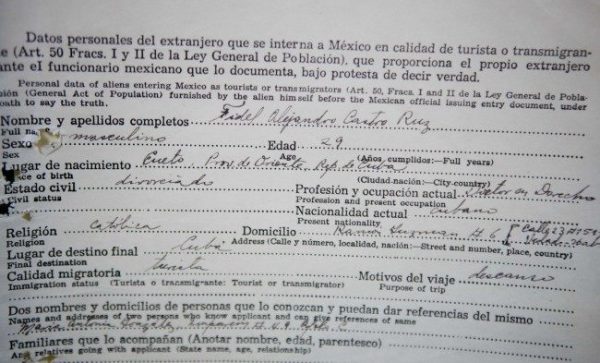 Datos personales del extranjero que se interna a México en calidad de turista o transmigran-
te (Art. 50 Fracs. I y II de la Ley General de Población), que proporciona el propio extranjero
ante el funcionario mexicano que lo documenta, bajo protesta de decir verdad.
Personal data of aliens entering Mexico as tourists or transmigrators (Art. 50, Fracs. I and II de la Ley General de Pobla-
ción (General Act of Population) furnished by the alien himself before the Mexican official issuing entry document, under
oath to say the truth.
Nombre y apellidos completos Fidel Alejandro Castro Ruz
Full name
Sexo masculino Edad 29
Sex Age (Años cumplidos:—Full years)
Lugar de nacimiento Cueto Prov. de Oriente Rep. de Cuba
Place of birth (Ciudad nación:—City country)
Estado civil divorciado Profesión y ocupación actual Doctor en Derecho
Civil status Profession and present occupation
Nacionalidad actual cubano
Religión católica Present nationality
Domicilio Ramón Guzman # 6 Calle 23 #
Religion Address (Calle y número, localidad, nación:—Street and number, place, country)
Lugar de destino final Cuba
Final destination
Calidad migratoria turista Motivos del viaje descanso
Immigration status (Turista o transmigrante: Tourist or transmigrator) Purpose of trip
Dos nombres y domicilios de personas que lo conozcan y puedan dar referencias del mismo
Names and addresses of two persons who know applicant and can give references of same
Maria Antonia Gonzalez Emparan # 49
Familiares que lo acompañan (Anotar nombre, edad, parentesco)
Any relatives going with applicant (State name, age, relationship)